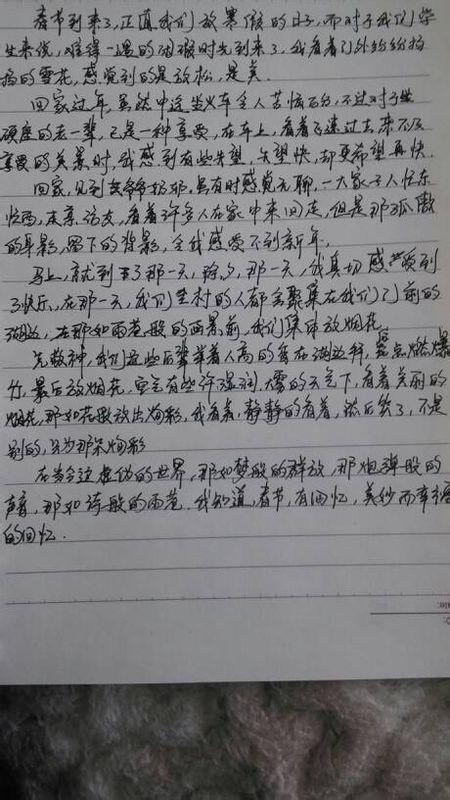 春节到来了,正值我们放寒假的日子,而对于我们学
生来说,难得一遇的闲暇时光到来了,我看着门外纷纷扬
扬的雪花,感觉到的是放松,是美.
回家过年,虽然中途坐火车令人苦恼百分,不过对于坐
硬座的老一辈,已是一种享受,在车上,看着飞速过去,来不及
享受的美景时,我感到有些失望,失望快,却更希望再快.
回家,见到爷爷奶奶,虽有时感觉无聊,一大家子人忙东
忙西,走亲访友,看着许多人在家中来回走,但是那孤傲
的身影,留下的背影,令我感受不到新年.
马上,就到了那一天,除夕,那一天,我真切感受到
了快乐,在那一天,我们全村的人都会聚集在我们门前的
湖边,在那如雨巷般的画景前,我们集中放烟花.
先敬神,我们这些后辈举着人高的香在湖边拜,点燃爆
竹,最后放烟花,空气有些许湿润,大雪的天气下,看着美丽的
烟花,那如花般放出绚彩,我看着,静静的看着,然后笑了,不是
别的,只为那朵绚彩
在当今这虚伪的世界,那如梦般的群放,那炮弹般的
声音,那如诗般的雨巷.我知道,春节,有回忆,美妙而幸福
的回忆.